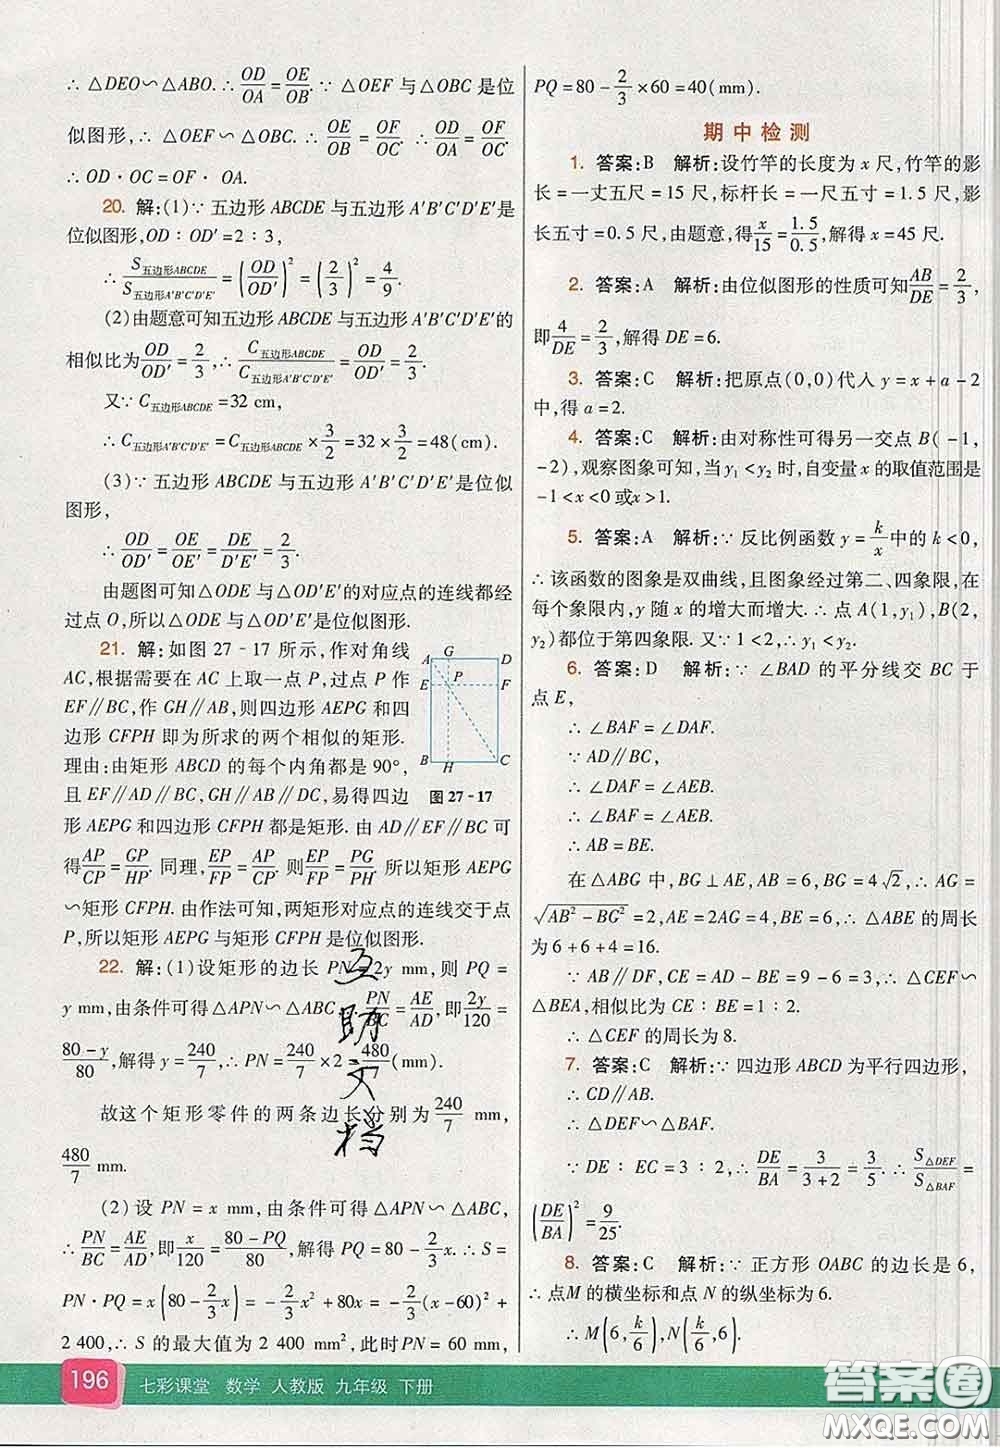 ∴ △DEO∽△ABO. ∴ OD/OA = OE/OB. ∵ △OEF 与△OBC 是位
似图形,∴ △OEF∽△OBC. ∴ OE/OB = OF/OC. ∴ OD/OA = OF/OC.
∴ OD·OC = OF·OA.
20. 解:(1)∵ 五边形 ABCDE 与五边形 A′B′C′D′E′是
位似图形,OD∶OD′=2∶3,
∴ S五边形ABCDE/S五边形A′B′C′D′E′ = (OD/OD′)² = (2/3)² = 4/9.
(2)由题意可知五边形 ABCDE 与五边形 A′B′C′D′E′的
相似比为OD/OD′ = 2/3,∴ C五边形ABCDE/C五边形A′B′C′D′E′ = OD/OD′ = 2/3.
又∵ C五边形ABCDE = 32 cm,
∴ C五边形A′B′C′D′E′ = C五边形ABCDE × 3/2 = 32 × 3/2 = 48(cm).
(3)∵ 五边形 ABCDE 与五边形 A′B′C′D′E′是位似
图形,
∴ OD/OD′ = OE/OE′ = DE/D′E′ = 2/3.
由题图可知△ODE 与△OD′E′的对应点的连线都经
过点 O,所以△ODE 与△OD′E′是位似图形.
21. 解:如图 27-17 所示,作对角线
AC,根据需要在 AC 上取一点 P,过点 P 作
EF∥BC,作 GH∥AB,则四边形 AEPG 和四
边形 CFPH 即为所求的两个相似的矩形.
理由:由矩形 ABCD 的每个内角都是 90°,
且 EF∥AD∥BC,GH∥AB∥DC,易得四边
形 AEPG 和四边形 CFPH 都是矩形. 由 AD∥EF∥BC 可
得AP/CP = GP/HP. 同理, EP/FP = AP/CP. 则EP/FP = PG/PH. 所以矩形 AEPG
∽矩形 CFPH. 由作法可知,两矩形对应点的连线交于点
P,所以矩形 AEPG 与矩形 CFPH 是位似图形.
A G D
E P F
B H C
图 27-17
22. 解:(1)设矩形的边长 PN = 2y mm,则 PQ =
y mm,由条件可得△APN∽△ABC, PN/BC = AE/AD,即2y/120 =
(80-y)/80,解得 y = 240/7,∴ PN = 240/7 × 2 = 480/7(mm).
故这个矩形零件的两条边长分别为 240/7 mm,
480/7 mm.
(2)设 PN = x mm,由条件可得△APN∽△ABC,
∴ PN/BC = AE/AD,即x/120 = (80-PQ)/80,解得 PQ = 80 - 2/3 x. ∴ S =
PN·PQ = x(80 - 2/3 x) = -2/3 x² + 80x = -2/3(x-60)² +
2 400,∴ S 的最大值为 2 400 mm²,此时 PN = 60 mm,
PQ = 80 - 2/3 × 60 = 40(mm).
期中检测
1. 答案:B 解析:设竹竿的长度为 x 尺,竹竿的影
长 = 一丈五尺 = 15 尺,标杆长 = 一尺五寸 = 1.5 尺,影
长五寸 = 0.5 尺,由题意,得x/15 = 1.5/0.5,解得 x = 45 尺.
2. 答案:A 解析:由位似图形的性质可知AB/DE = 2/3,
即4/DE = 2/3,解得 DE = 6.
3. 答案:C 解析:把原点(0,0)代入 y = x + a - 2
中,得 a = 2.
4. 答案:C 解析:由对称性可得另一交点 B(-1,
-2),观察图象可知,当 y₁<y₂ 时,自变量 x 的取值范围是
-1<x<0 或x>1.
5. 答案:A 解析:∵ 反比例函数 y = k/x 中的 k<0,
∴ 该函数的图象是双曲线,且图象经过第二、四象限,在
每个象限内,y 随 x 的增大而增大. ∴ 点 A(1,y₁),B(2,
y₂)都位于第四象限. 又∵ 1<2,∴ y₁<y₂.
6. 答案:D 解析:∵ ∠BAD 的平分线交 BC 于
点 E,
∴ ∠BAF = ∠DAF.
∵ AD∥BC,
∴ ∠DAF = ∠AEB.
∴ ∠BAF = ∠AEB.
∴ AB = BE.
在△ABG 中,BG⊥AE,AB = 6,BG = 4√2,∴ AG =
√(AB²-BG²) = 2,AE = 2AG = 4,∴ △ABE 的周长
为 6 + 6 + 4 = 16.
∵ AB∥DF,CE = AD - BE = 9 - 6 = 3,∴ △CEF∽
△BEA,相似比为 CE∶BE = 1∶2.
∴ △CEF 的周长为 8.
7. 答案:C 解析:∵ 四边形 ABCD 为平行四边形,
∴ CD∥AB.
∴ △DEF∽△BAF.
∵ DE∶EC = 3∶2,∴ DE/BA = 3/(3+2) = 3/5. ∴ S△DEF/S△BAF =
(DE/BA)² = 9/25.
8. 答案:C 解析:∵ 正方形 OABC 的边长是 6,
∴ 点M 的横坐标和点 N 的纵坐标为 6.
∴ M(6,k/6),N(k/6,6).
互
助
文
档
196 七彩课堂 数学 人教版 九年级 下册
答案圈
MXQE.COM